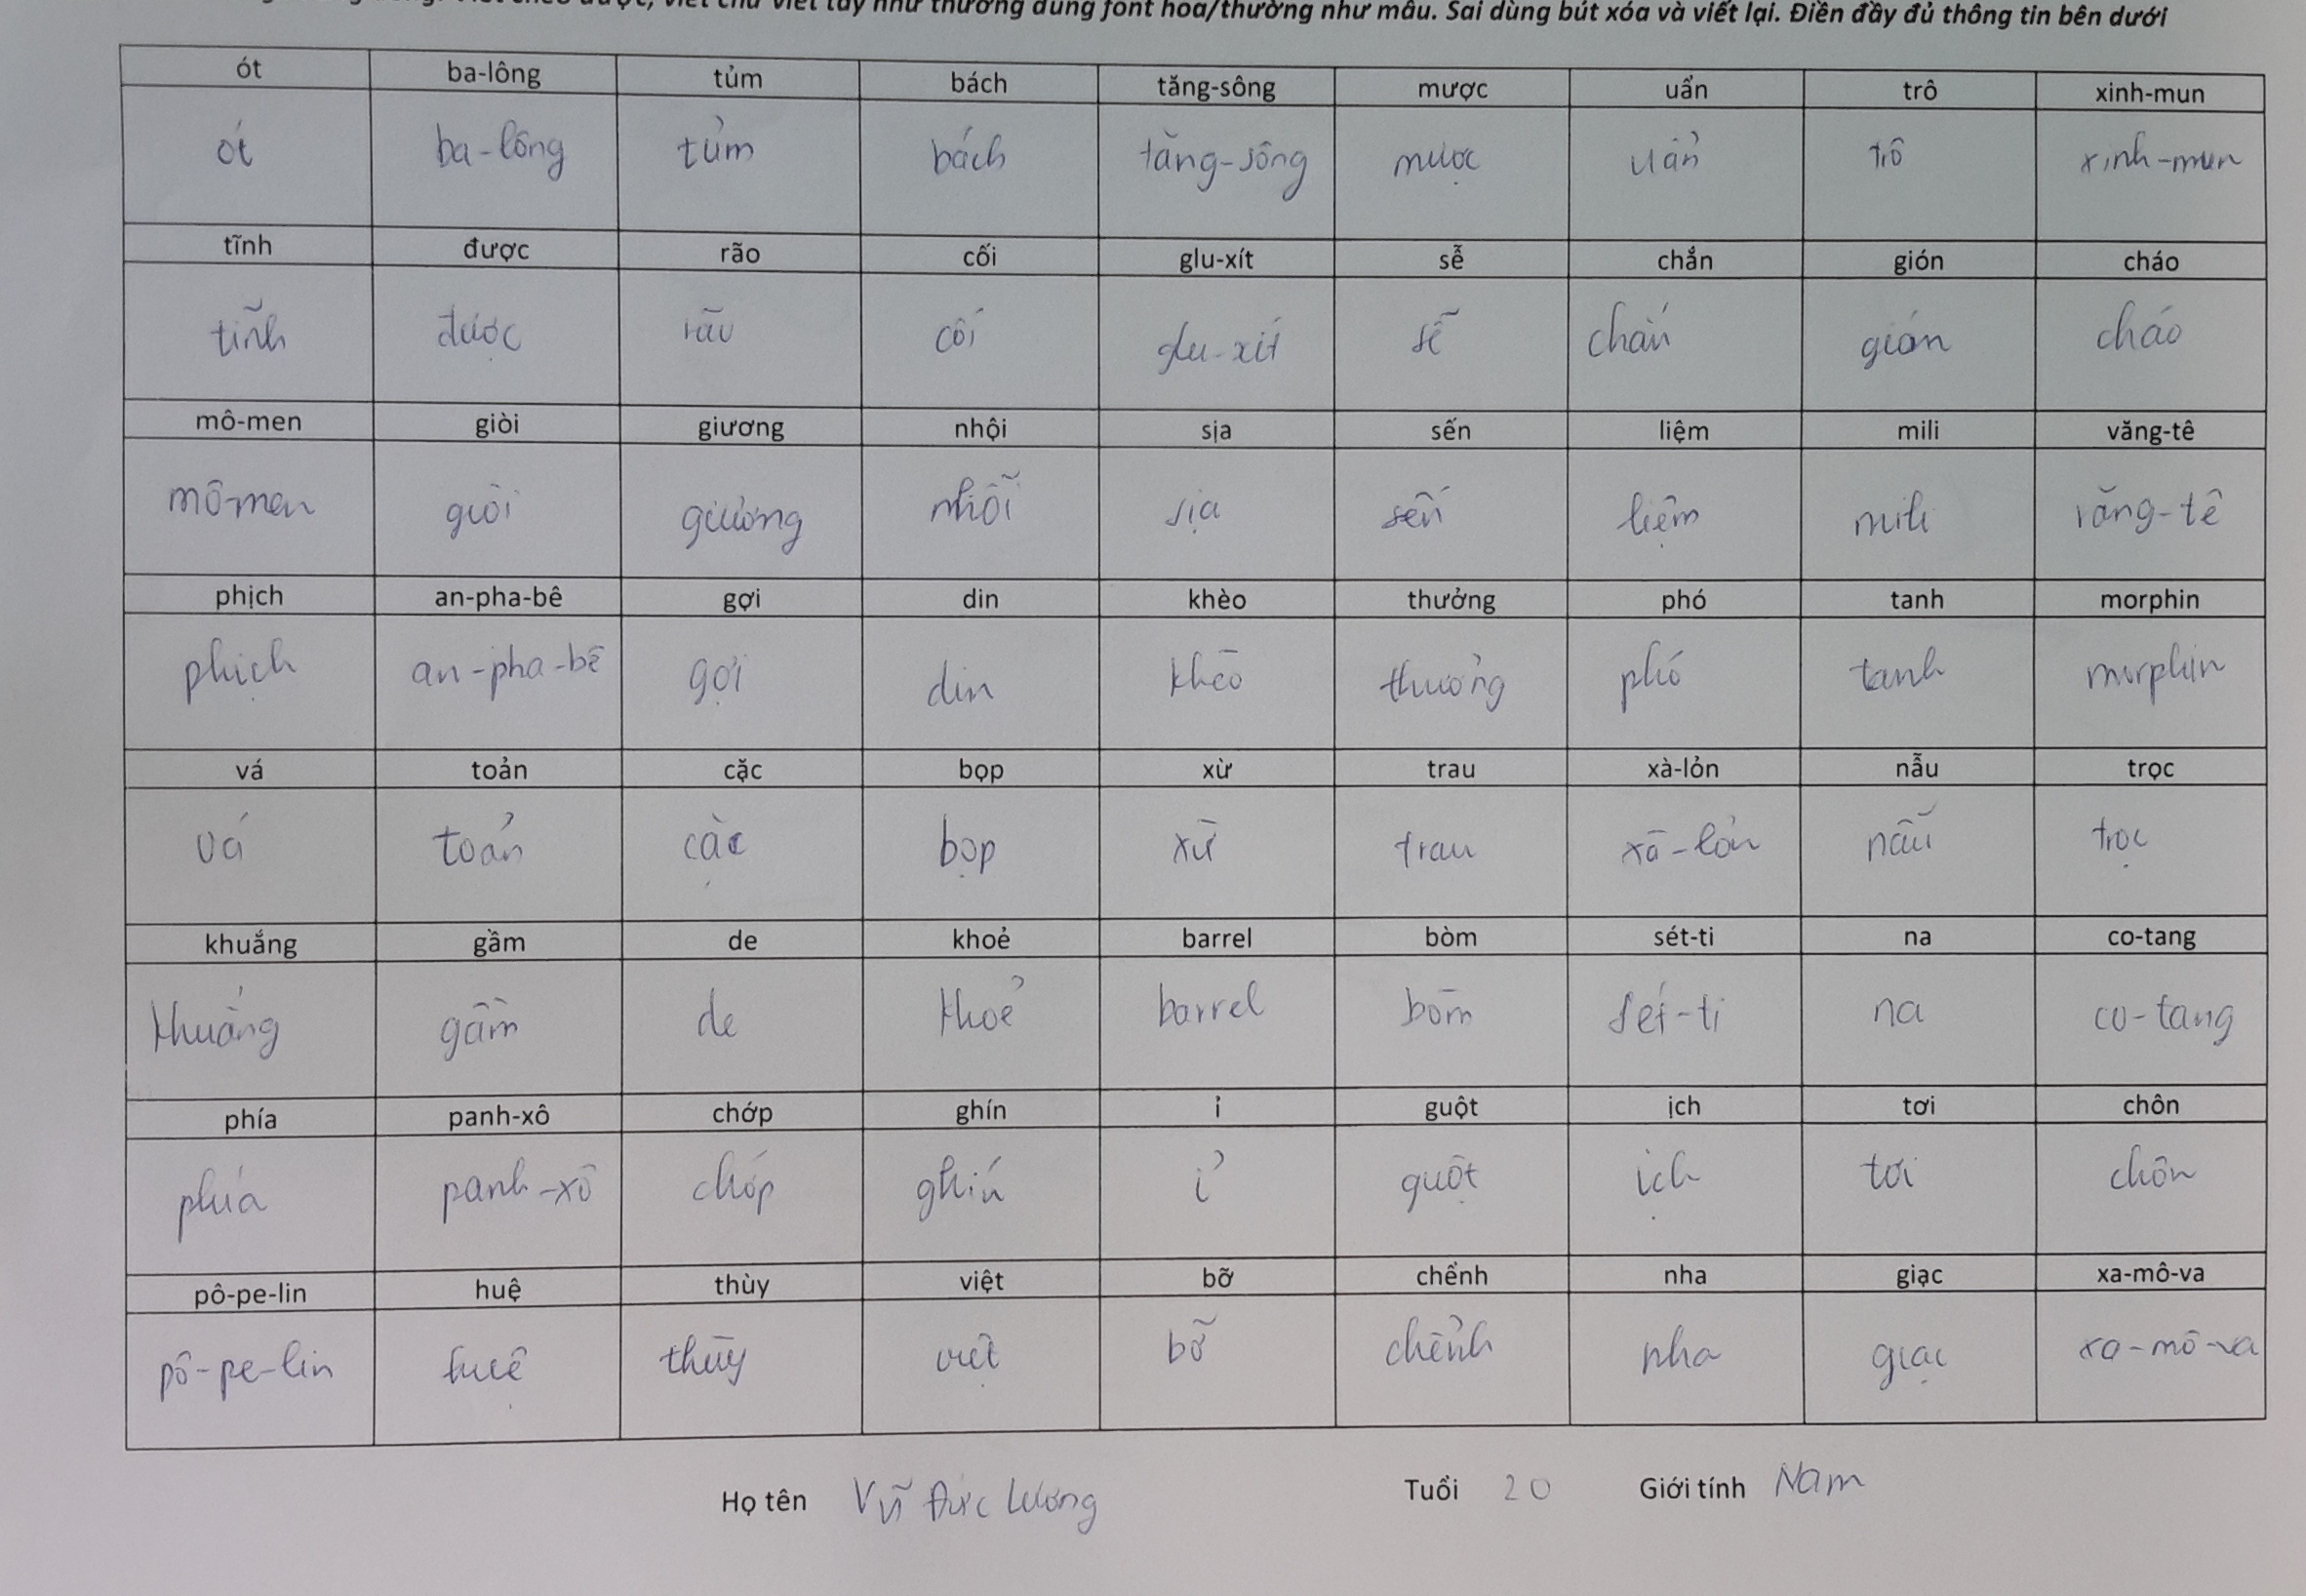 viết chữ viết tay như thường dùng font hoa/thường như mẫu. Sai dùng bút xóa và viết lại. Điền đầy đủ thông tin bên dưới
ót ba-lông tủm bách tăng-sông mược uẩn trô xinh-mun
ót ba-lông tủm bách tăng-sông mược uẩn trô xinh-mun
tĩnh được rão cối glu-xít sễ chắn gión cháo
tĩnh được rão cối glu-xít sễ chắn gión cháo
mô-men giòi giương nhội sịa sến liệm mili văng-tê
mô-men giòi giương nhỗi sịa sến liệm mili văng-tê
phịch an-pha-bê gợi din khèo thưởng phó tanh morphin
phịch an-pha-bê gợi din khèo thưởng phó tanh morphin
vá toản cặc bọp xừ trau xà-lỏn nẫu trọc
vá toản cặc bọp xừ trau xà-lỏn nẫu trọc
khuắng gầm de khoẻ barrel bòm sét-ti na co-tang
khuắng gầm de khoẻ barrel bòm sét-ti na co-tang
phía panh-xô chớp ghín ỉ guột ịch tơi chôn
phía panh-xô chớp ghín ỉ guột ịch tơi chôn
pô-pe-lin huệ thùy việt bỡ chểnh nha giạc xa-mô-va
pô-pe-lin huệ thùy việt bỡ chểnh nha giạc xa-mô-va
Họ tên Vũ Đức Lương Tuổi 20 Giới tính Nam